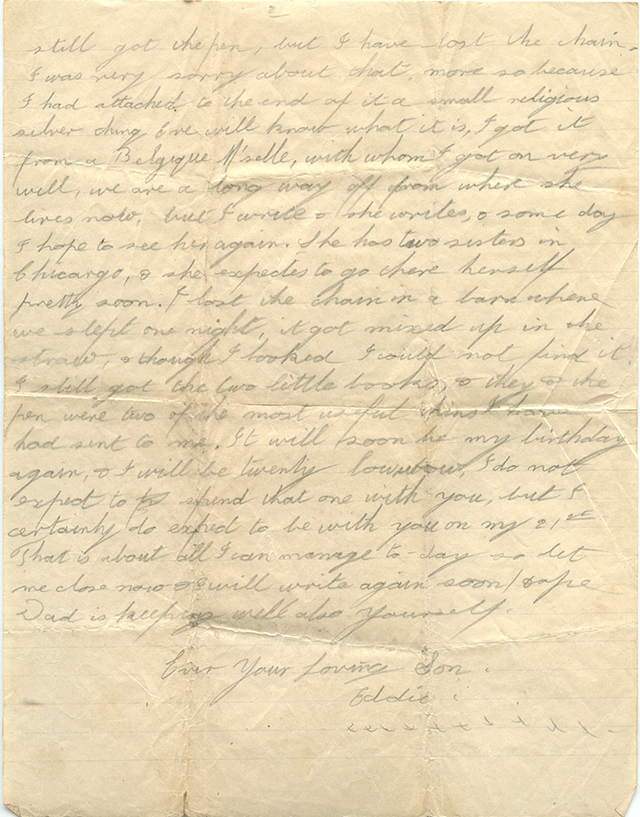 2
still got the pen, but I have lost the chain.
I was very sorry about that, more so because
I had attached to the end of it a small religious
silver thing Eve will know what it is, I got it
from a Belgique M'selle, with whom I got on very
well, we are a long way off from where she
lives now, but I write & she writes, & some day
I hope to see her again. She has two sisters in
Chicargo, & she expectes to go there herself
pretty soon. I lost the chain in a barn where
we slept one night, it got mixed up in the
straw, & though I looked I could not find it.
I still got the two little books, & they & the
pen were two of the most useful I have
had sent to me. It will soon be my birthday
again, & I will be twenty I do not
expect to spend that one with you, but I
certainly do expect to be with you on my 21st
That is about all I can manage to-day so let
me close now & I will write again soon hope
Dad is keeping well also yourself.
Ever Your Loving Son.
Eddie.
x x x x x x x x x x